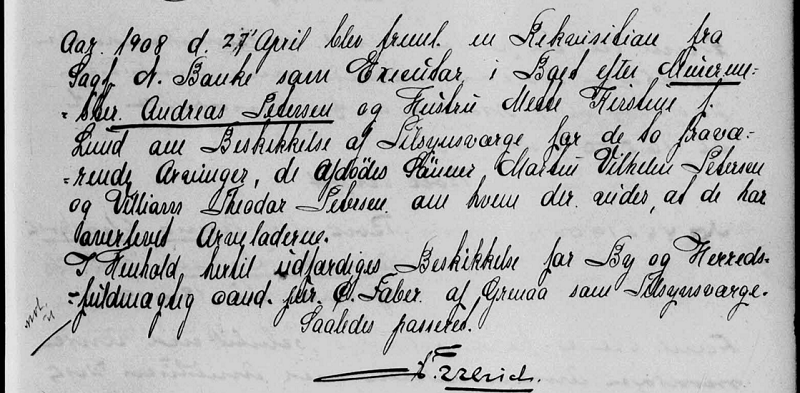 Aar 1908 d. 27' April blev freml. en Rekvisition fra
Sagf. N. Bauke som Executor i Boet efter Murerme-
-ster Andreas Petersen og Hustru Mette Kirstine f.
Lund om Beskikkelse af Tilsynsværge for de to fravæ-
-rende Arvinger, de Afdödes Sönner Martin Vilhelm Petersen
og Villiam Theodor Petersen om hvem der vides, at de har
overlevet Arveladerne.
I Henhold hertil udfærdiges Beskikkelse for By og Herreds-
-fuldmægtig cand. jur. Faber af Grenaa som Tilsynsværge.
Saaledes passeret.
not.